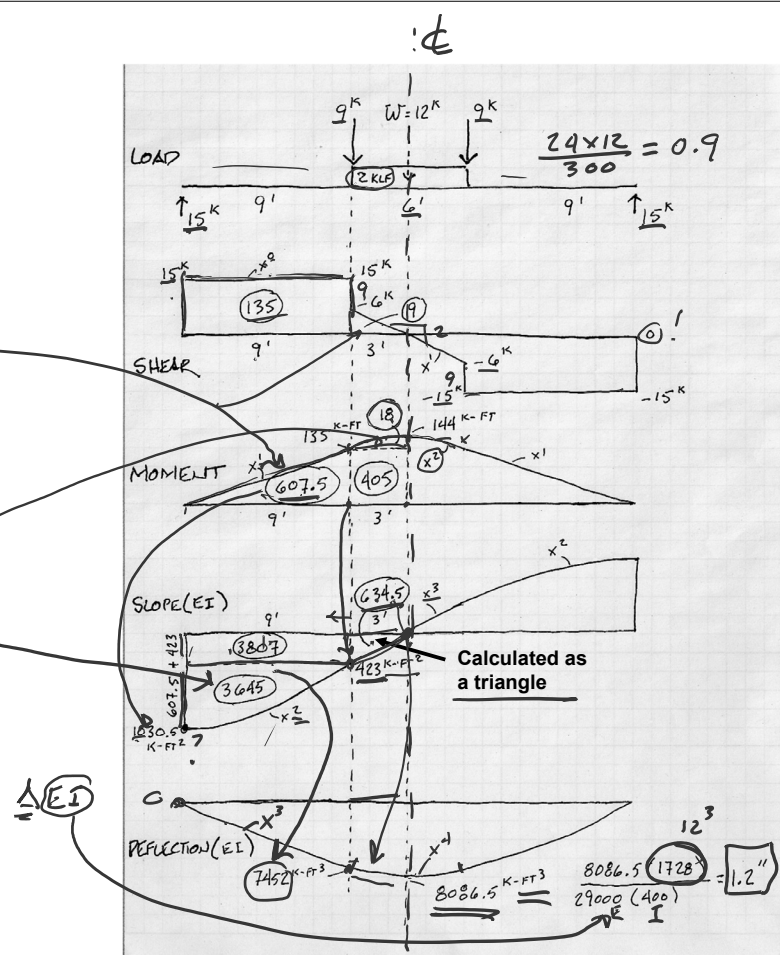 ℄
9ᴷ W=12ᴷ 9ᴷ
LOAD
24x12
300
= 0.9
2 KLF
15ᴷ 9' 6' 9' 15ᴷ
15ᴷ x⁰ 15ᴷ
9
6ᴷ
135
9
2
0!
9' 3' x¹
SHEAR
-6ᴷ
9
-15ᴷ
-15ᴷ
18
135 K-FT
144 K-FT
MOMENT
x¹
607.5
405
x²
x¹
9' 3'
x²
SLOPE(EI)
634.5
x³
9' 3'
3807
607.5 + 423
423 K-FT²
Calculated as
a triangle
3645
x²
1030.5
K-FT²
Δ(EI)
0
x³
DEFLECTION(EI)
x⁴
7452 K-FT³
8086.5 K-FT³
12³
8086.5 (1728)
29000 (400)
= 1.2"
E I